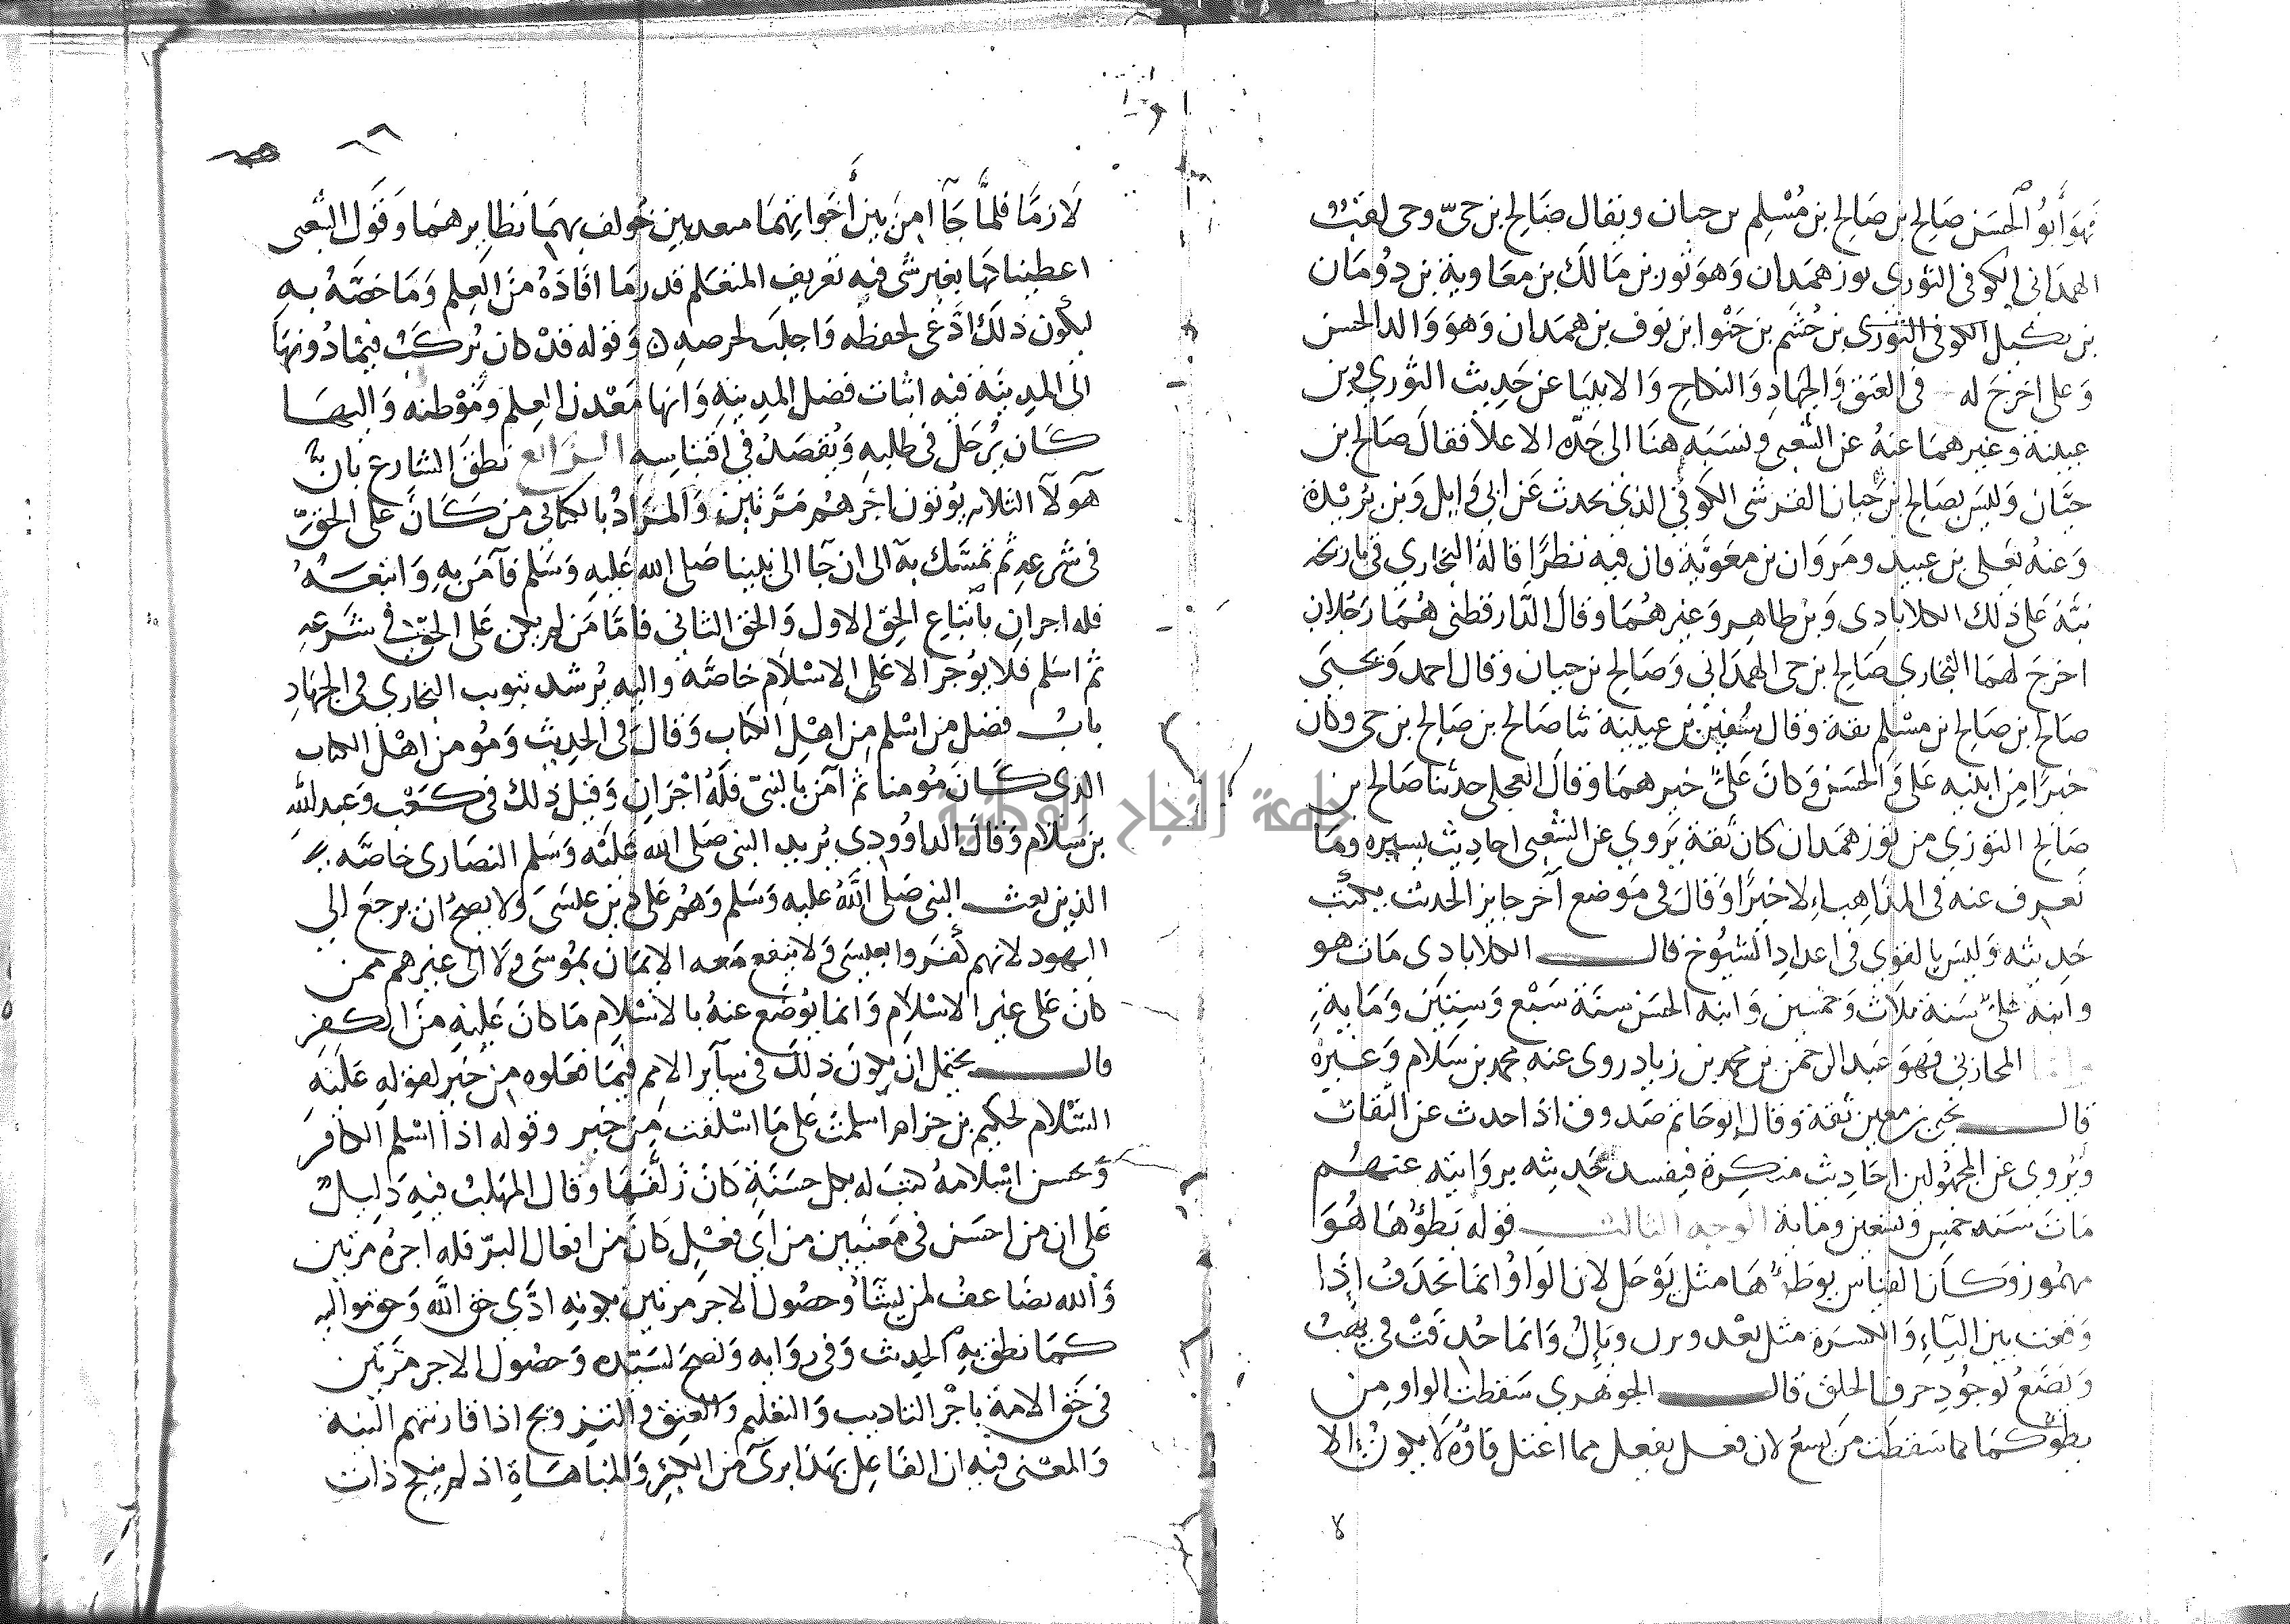 فهو أبو الحسن صالح بن صالح بن مسلم بن حيان ويقال صالح بن حيّ وحي لقبٌ
الهمداني الكوفي الثوري ثور همدان وهو ثور بن مالك بن معاوية بن دومان
بن بكيل الكوفي الثوري بن جشم بن خيوا ابن نوف بن همدان وهو والد الحسن
وعلى اخرج له في العتق والجهاد والنكاح والانبيا عن حديث الثوري وبن
عيينة وغيرهما عنه عن الشعبي ونسبه هنا الى جده الاعلا فقال صالح بن
حيَّان وليس بصالح بن حيان القرشي الكوفي الذي يحدث عن ابي وايل وبن بريدة
وعنه يعلى بن عبيد ومروان بن معوية فان فيه نظرًا قاله البخاري في تاريخه
نبَّه على ذلك الكلاباذي وبن طاهر وغيرهما وقال الدارقطني هما رجلان
اخرج لهما البخاري صالح بن حي الهمداني وصالح بن حيان وقال احمد ويحيى
صالح بن صالح بن مسلم ثقة وقال سفين بن عيينة ثنا صالح بن صالح بن حي وكان
خيرًا من ابنيه علي والحسن وكان عليٌّ خيرهما وقال العجلي حدثنا صالح بن
صالح الثوري من ثور همدان كان ثقة يروي عن الشعبي احاديث يسيره وما
نعرف عنه في المذاهب الا خيرًا وقال في موضع آخر جايز الحديث يكتب
حديثه وليس بالقوي في اعداد الشيوخ قال الكلاباذي مات هو
وابنه عليٌّ سنة ثلاث وخمسين وابنه الحسن سنة سبع وستين ومايةِ
المحاربي فهو عبد الرحمن بن محمد بن زياد روى عنه محمد بن سلام وغيره
قال يحيى بن معين ثقة وقال ابو حاتم صدوق اذا حدث عن الثقات
ويروي عن المجهولين احاديث منكرة فيفسد حديثه بروايته عنهم
مات سنه خمس وتسعين وماية الوجه الثالث قوله يطؤها هُوَ
مهموز وكان القياس يوطَؤُها مثل يوجل لان الواو انما تحذف إذا
وقعت بين الياء والكسرة مثل يعد ويرث ويَلِي وانما حُذفت في يهب
ويضع لوجود حرف الحلق قال الجوهري سقطت الواو من
يطؤ كما سقطت من يسع لان فعل يفعل مما اعتل فاؤه لا يكون إلا
لازمًا فلمَّا جآا من بين أخواتهما متعديين خولف بهما نظايرهما وقول الشعبي
اعطيناكها بغير شي فيه تعريف المتعلم قدر ما افاده من العلم وما خصَّهُ به
ليكون ذلك ادَّعى لحفظه واجلب لحرصه وقوله قد كان يُركب فيما دونها
الى المدينة فيه اثبات فضل المدينة وانها معدن العلم ومَوْطنه واليها
كان يُرحل في طلبه ويُقصد في اقتباسه الرابع نطق الشارع بانَّ
هولآ الثلاثه يوتون اجرهم مرَّتين والمراد بالكتابي من كان على الحقِّ
في شرعه ثم تمسّك به الى ان جآ الى نبينا صلى الله عليه وسلم فآمن به واتبعه
فله اجران باتباع الحق الاول والحق الثاني فامَّا من لم يكن على الحق في شرعه
ثم اسلم فلا يوجر الا على الاسلام خاصَّة واليه يُرشد تبويب البخاري في الجهادِ
باب فضل من اسلم من اهل الكتاب وقال في الحديث ومومن اهل الكتاب
الذي كان مومنا ثم آمن بالنبيّ فله اجران وقيل ذلك في كعب وعبد الله
بن سلام وقال الداوودي يريد النبي صلى الله عليه وسلم النصارى خاصَّه
الذين بعث النبي صلى الله عليه وسلم وهم على دين عيسى ولا يصح ان يرجع الى
اليهود لانهم كفروا بعيسى ولا ينفع معه الايمان بموسى ولا الى غيرهم ممن
كان على غير الاسلام وانما يوضع عنه بالاسلام ما كان عليه من الكفر
قال يحتمل ان يكون ذلك في سآير الامم فيما فعلوه من خير لقوله عليه
السّلام لحكيم بن حزام اسلمت على ما اسلفت من خير وقوله اذا اسلم الكافر
وحسن اسلامه كتب له بكل حسنة كان زلَّفها وقال المهلب فيه دليلٌ
على ان من احسن في معنيين من اي فعل كان من افعال البرّ فله اجره مرتين
والله يضاعف لمن يشآ وحصول الاجر مرتين لكونه ادَّى حق الله وحق مواليه
كما نطق به الحديث وفي روايه ونصح لسيّده وحصول الاجر مرتين
في حق الامة باجر التاديب والتعليم والعتق والتزويج اذا قارنتهم النية
والمعنى فيه ان الفاعل بهذا برئ من الكبر والمباهاة اذ لم ينكح ذات